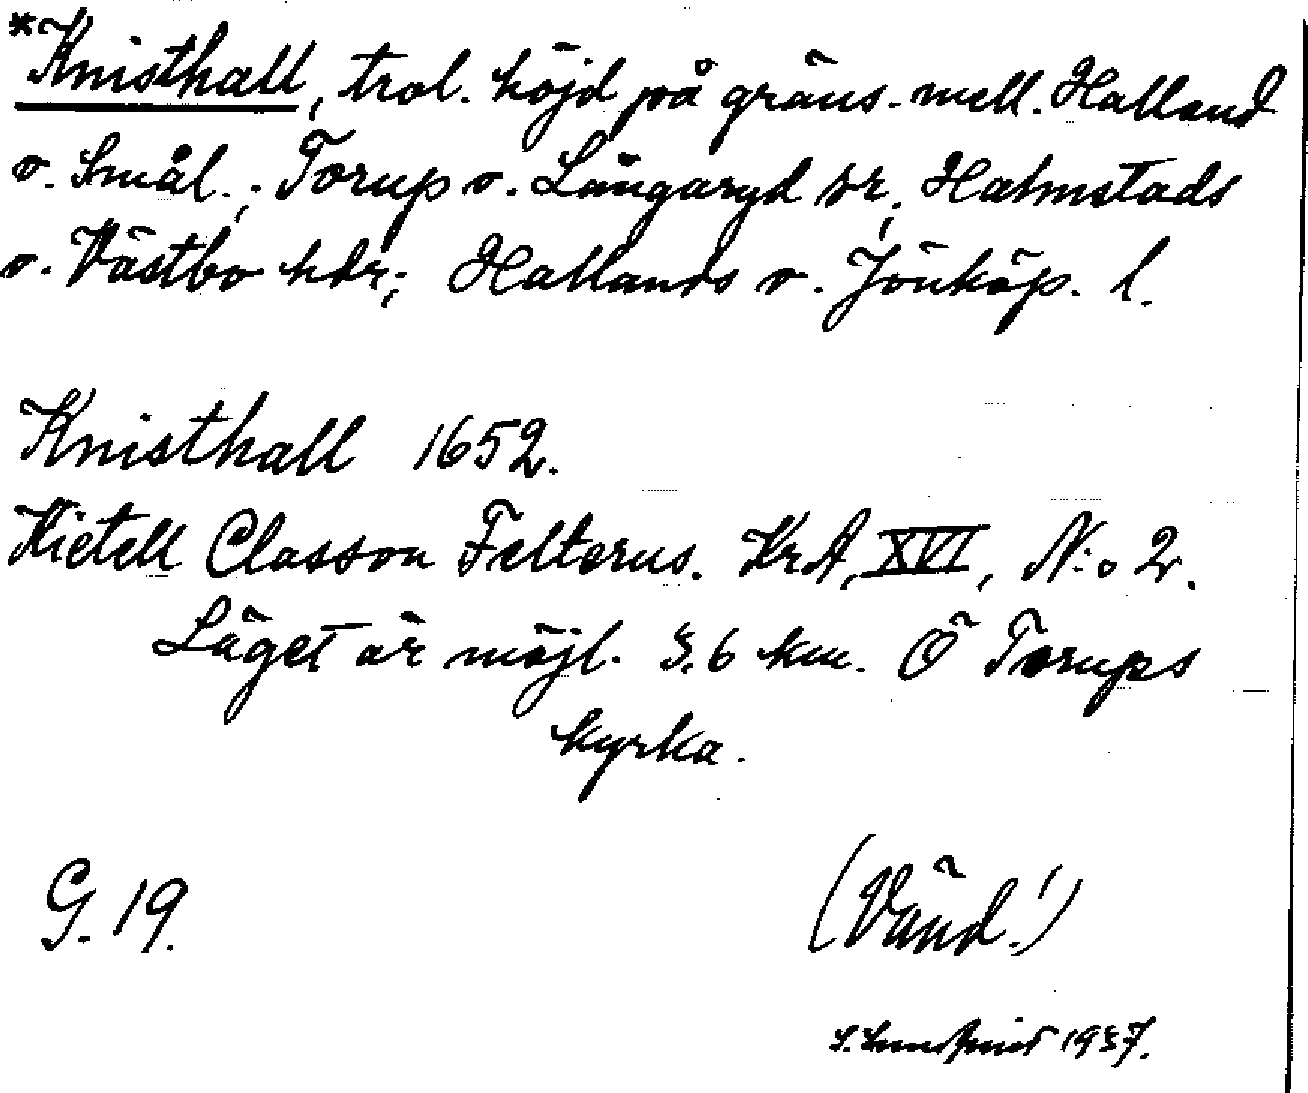 *Knisthall, trol. höjd på gräns. mell. Halland
o. Smål.; Torup o. Långaryd sr, Halmstads
o. Västbo hdr; Hallands o. Jönköp. l.
Knisthall 1652.
Kietell Classon Felterus. KrA, XVI, N:o 2.
Läget är möjl. 3.6 km. Ö Torups
kyrka.
G. 19.
(Vänd!)
1937.